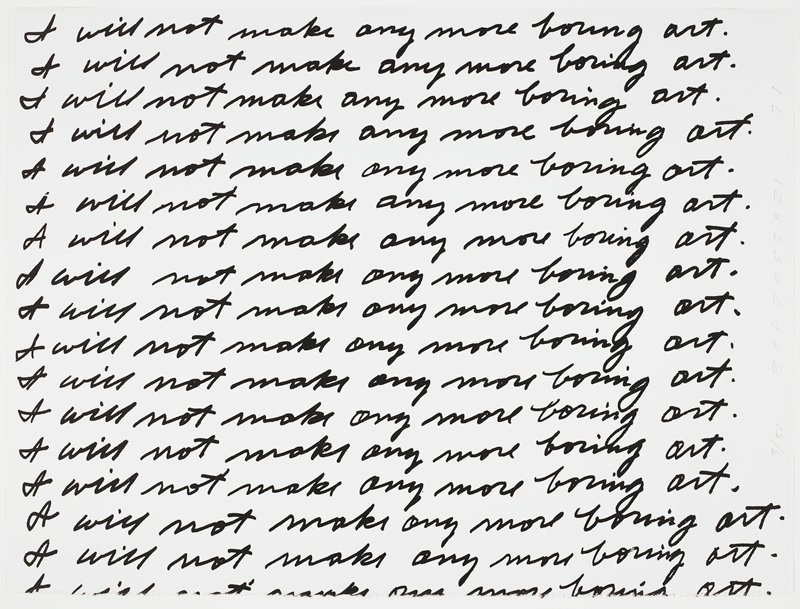 I will not make any more boring art.
I will not make any more boring art.
I will not make any more boring art.
I will not make any more boring art.
I will not make any more boring art.
I will not make any more boring art.
I will not make any more boring art.
I will not make any more boring art.
I will not make any more boring art.
I will not make any more boring art.
I will not make any more boring art.
I will not make any more boring art.
I will not make any more boring art.
I will not make any more boring art.
I will not make any more boring art.
I will not make any more boring art.
I will not make any more boring art.
3/50 BALDESSARI 71